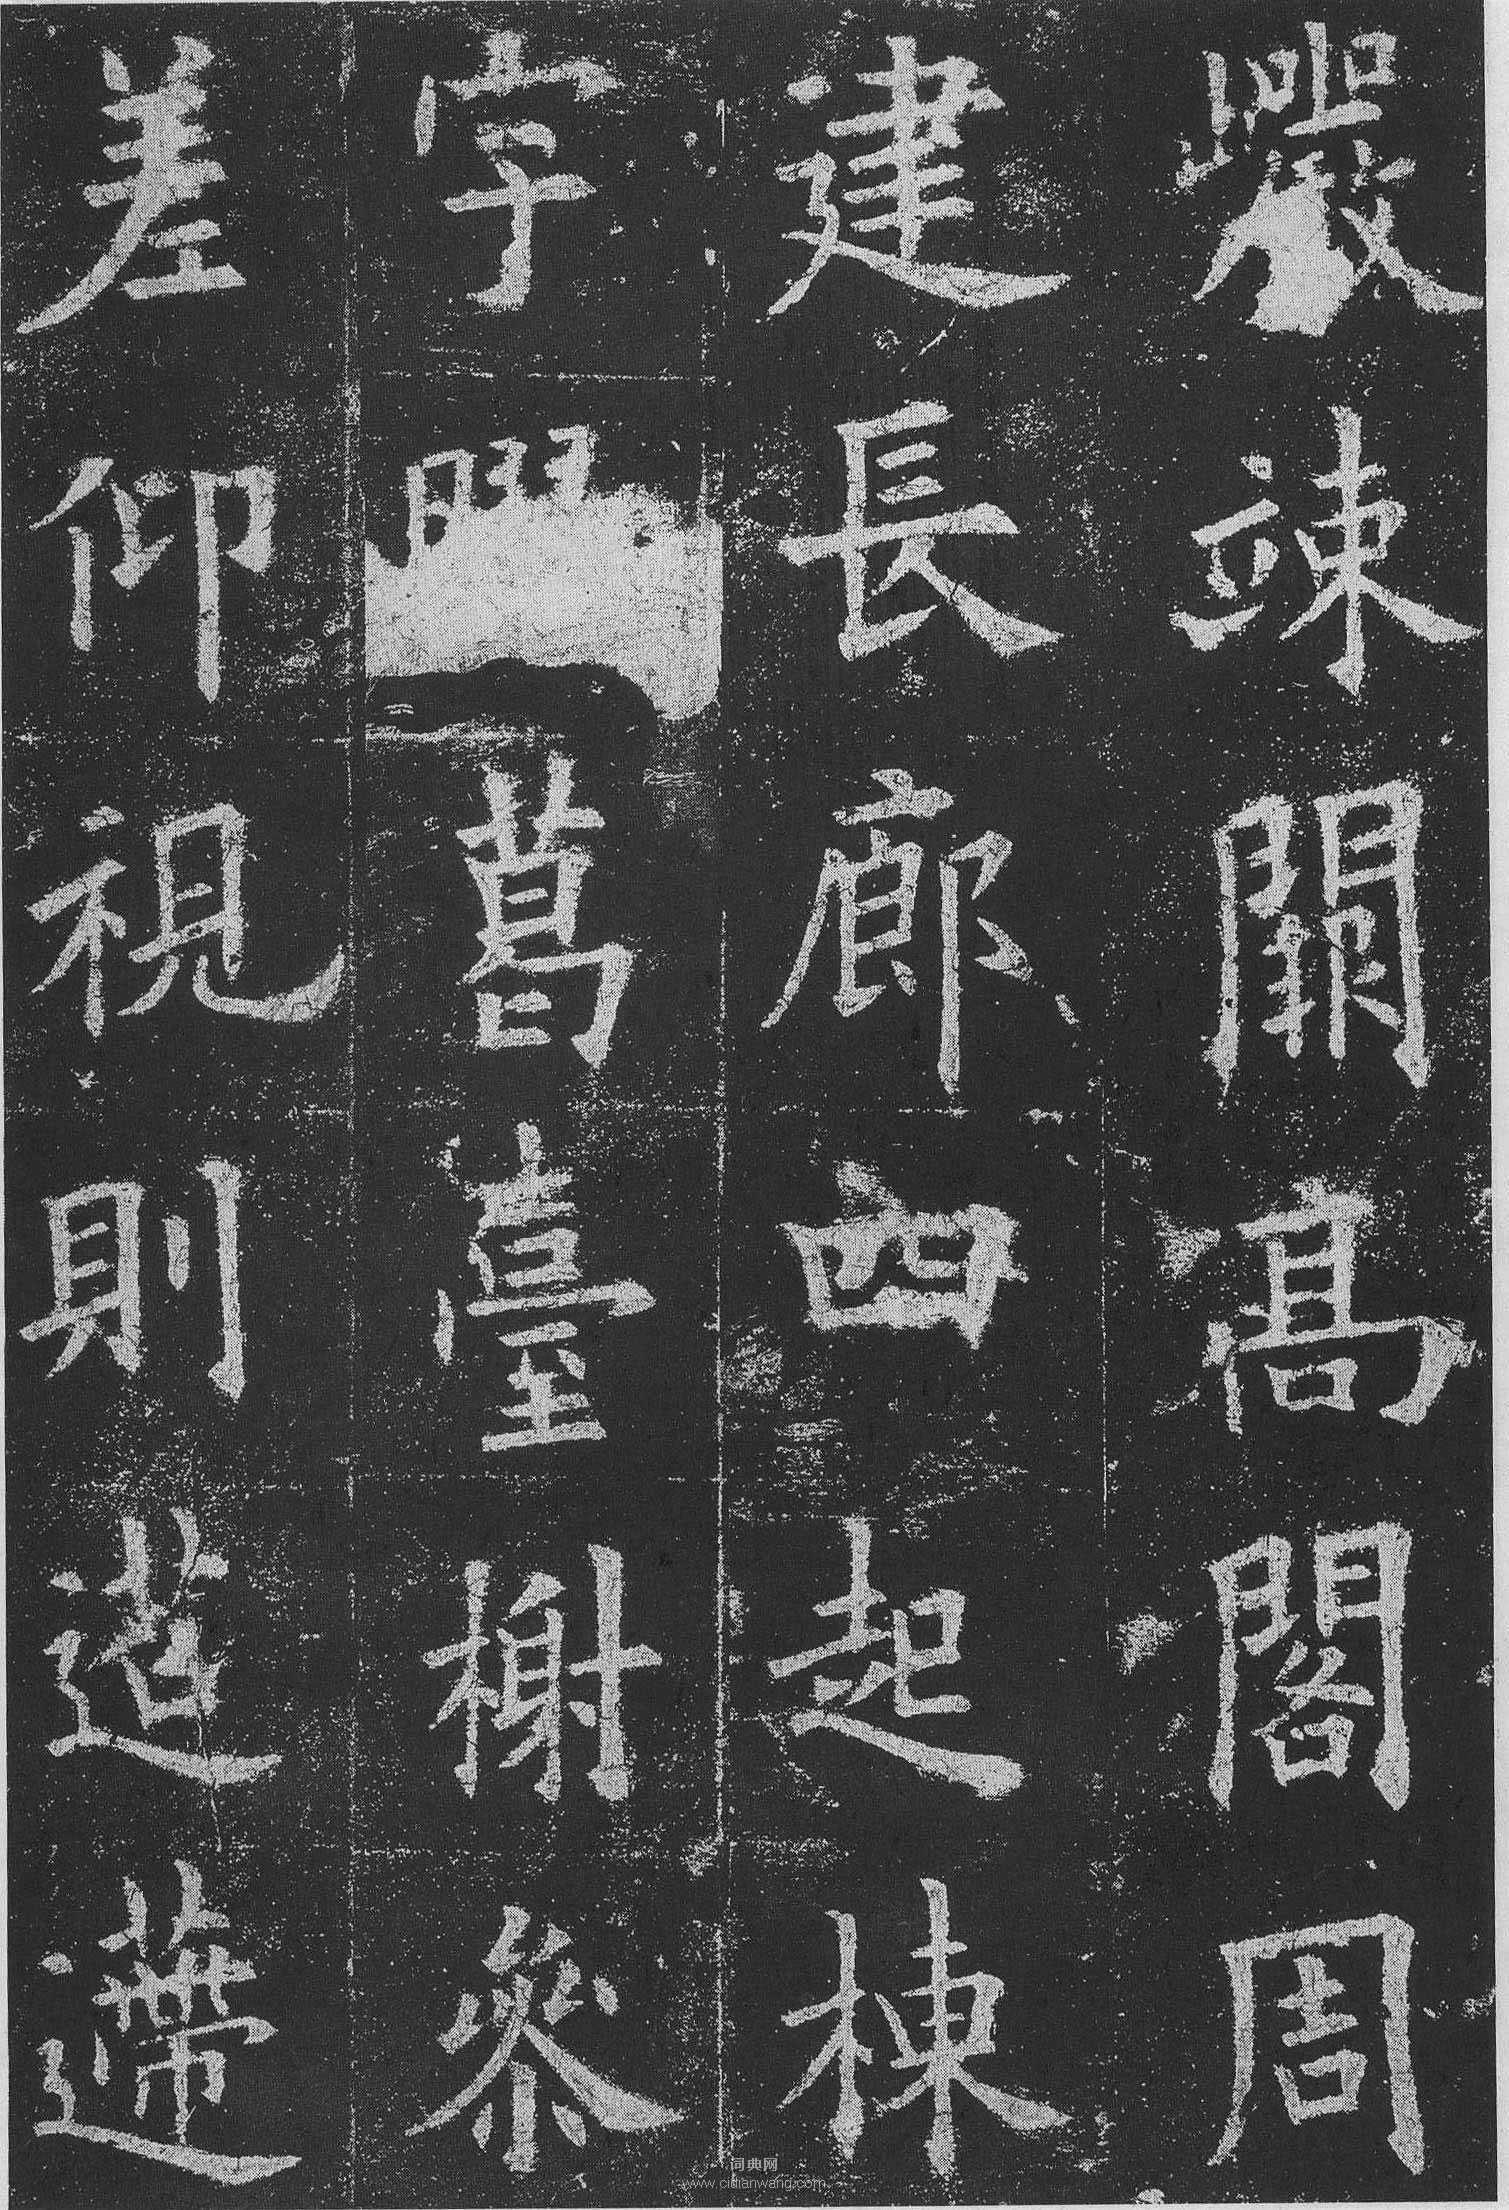 巖竦闕高閣周
建長廊四起棟
宇膠葛臺榭參
差仰視則迢遰
词典网
www.cidianwang.com